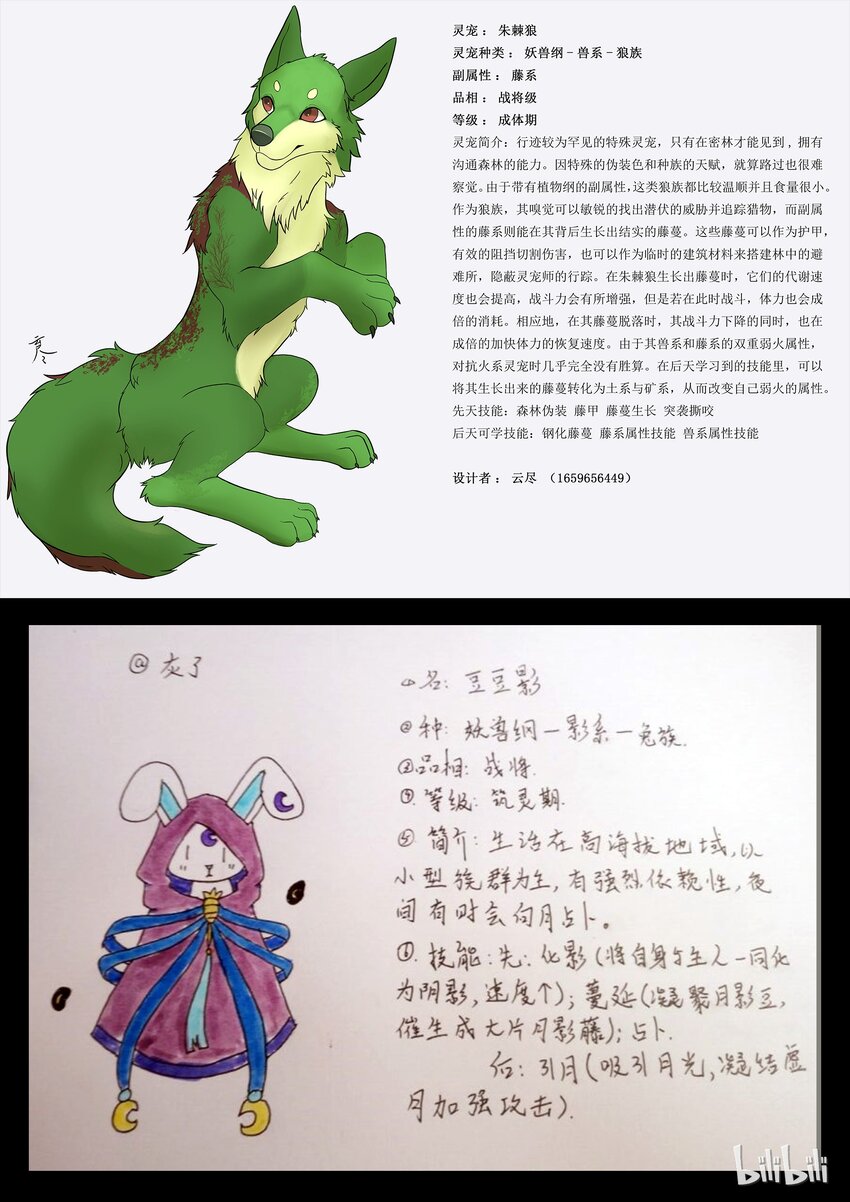 灵宠： 朱棘狼
灵宠种类： 妖兽纲－兽系－狼族
副属性： 藤系
品相： 战将级
等级： 成体期
灵宠简介：行迹较为罕见的特殊灵宠，只有在密林才能见到，拥有
沟通森林的能力。因特殊的伪装色和种族的天赋，就算路过也很难
察觉。由于带有植物纲的副属性，这类狼族都比较温顺并且食量很小。
作为狼族，其嗅觉可以敏锐的找出潜伏的威胁并追踪猎物，而副属
性的藤系则能在其背后生长出结实的藤蔓。这些藤蔓可以作为护甲，
有效的阻挡切割伤害，也可以作为临时的建筑材料来搭建林中的避
难所，隐蔽灵宠师的行踪。在朱棘狼生长出藤蔓时，它们的代谢速
度也会提高，战斗力会有所增强，但是若在此时战斗，体力也会成
倍的消耗。相应地，在其藤蔓脱落时，其战斗力下降的同时，也在
成倍的加快体力的恢复速度。由于其兽系和藤系的双重弱火属性，
对抗火系灵宠时几乎完全没有胜算。在后天学习到的技能里，可以
将其生长出来的藤蔓转化为土系与矿系，从而改变自己弱火的属性。
先天技能：森林伪装 藤甲 藤蔓生长 突袭撕咬
后天可学技能：钢化藤蔓 藤系属性技能 兽系属性技能
设计者： 云尽 （1659656449）
@灰了
①名：豆豆影
②种：妖兽纲－影系－兔族.
③品相：战将.
④等级：筑灵期.
⑤简介：生活在高海拔地域，以
小型族群为生，有强烈依赖性，夜
间有时会向月占卜。
⑥.技能：先：化影（将自身与主人一同化
为阴影，速度↑）；蔓延（凝聚月影豆，
催生成大片月影藤）；占卜.
后：引月（吸引月光，凝结虚
月加强攻击）.
bilibili